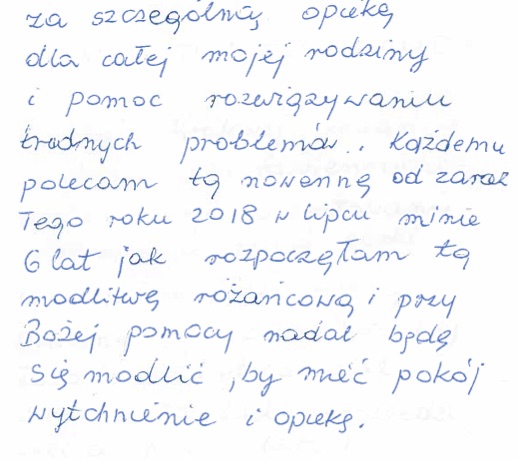 za szczególną opiekę
dla całej mojej rodziny
i pomoc rozwiązywaniu
trudnych problemów. Każdemu
polecam tą nowennę od zaraz
Tego roku 2018 w lipcu minie
6 lat jak rozpoczęłam tą
modlitwę różańcową i przy
Bożej pomocy nadal będę
się modlić, by mieć pokój
wytchnienie i opiekę.